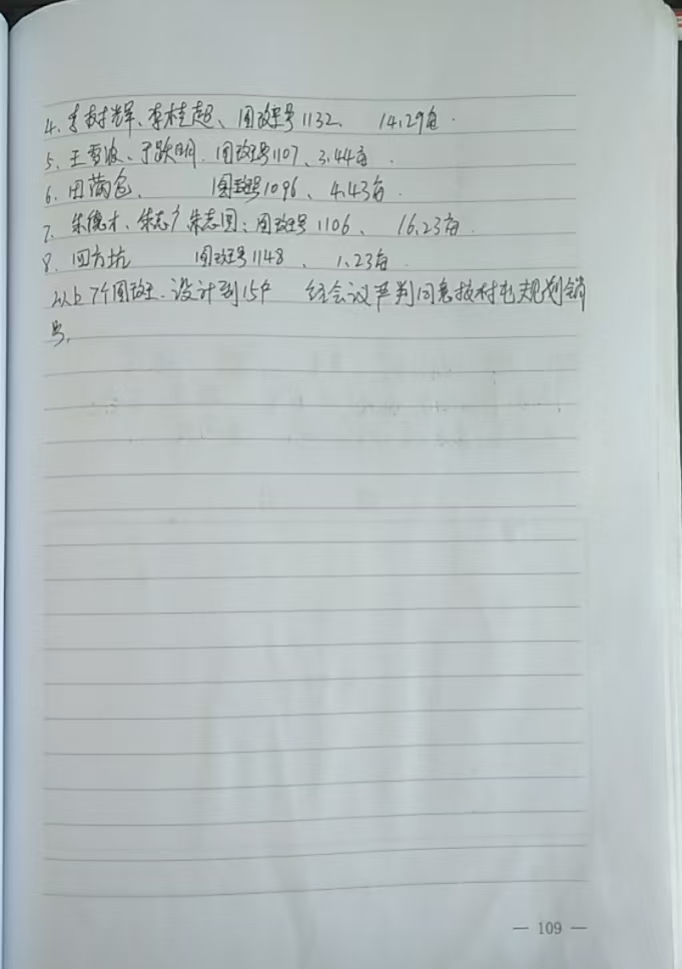 4、李树辉、李桂超、图斑号1132、 14.29亩.
5、王雪波、于跃明.图斑号1107、3.44亩.
6、田荷包、 图斑号1096、4.43亩.
7、朱德才、朱志广朱志国:图斑号1106、 16.23亩.
8、四方坑 图斑号1148、 1.23亩.
以上7个图斑.设计到15户 经会议严判同意按村屯规划销
号.
— 109 —